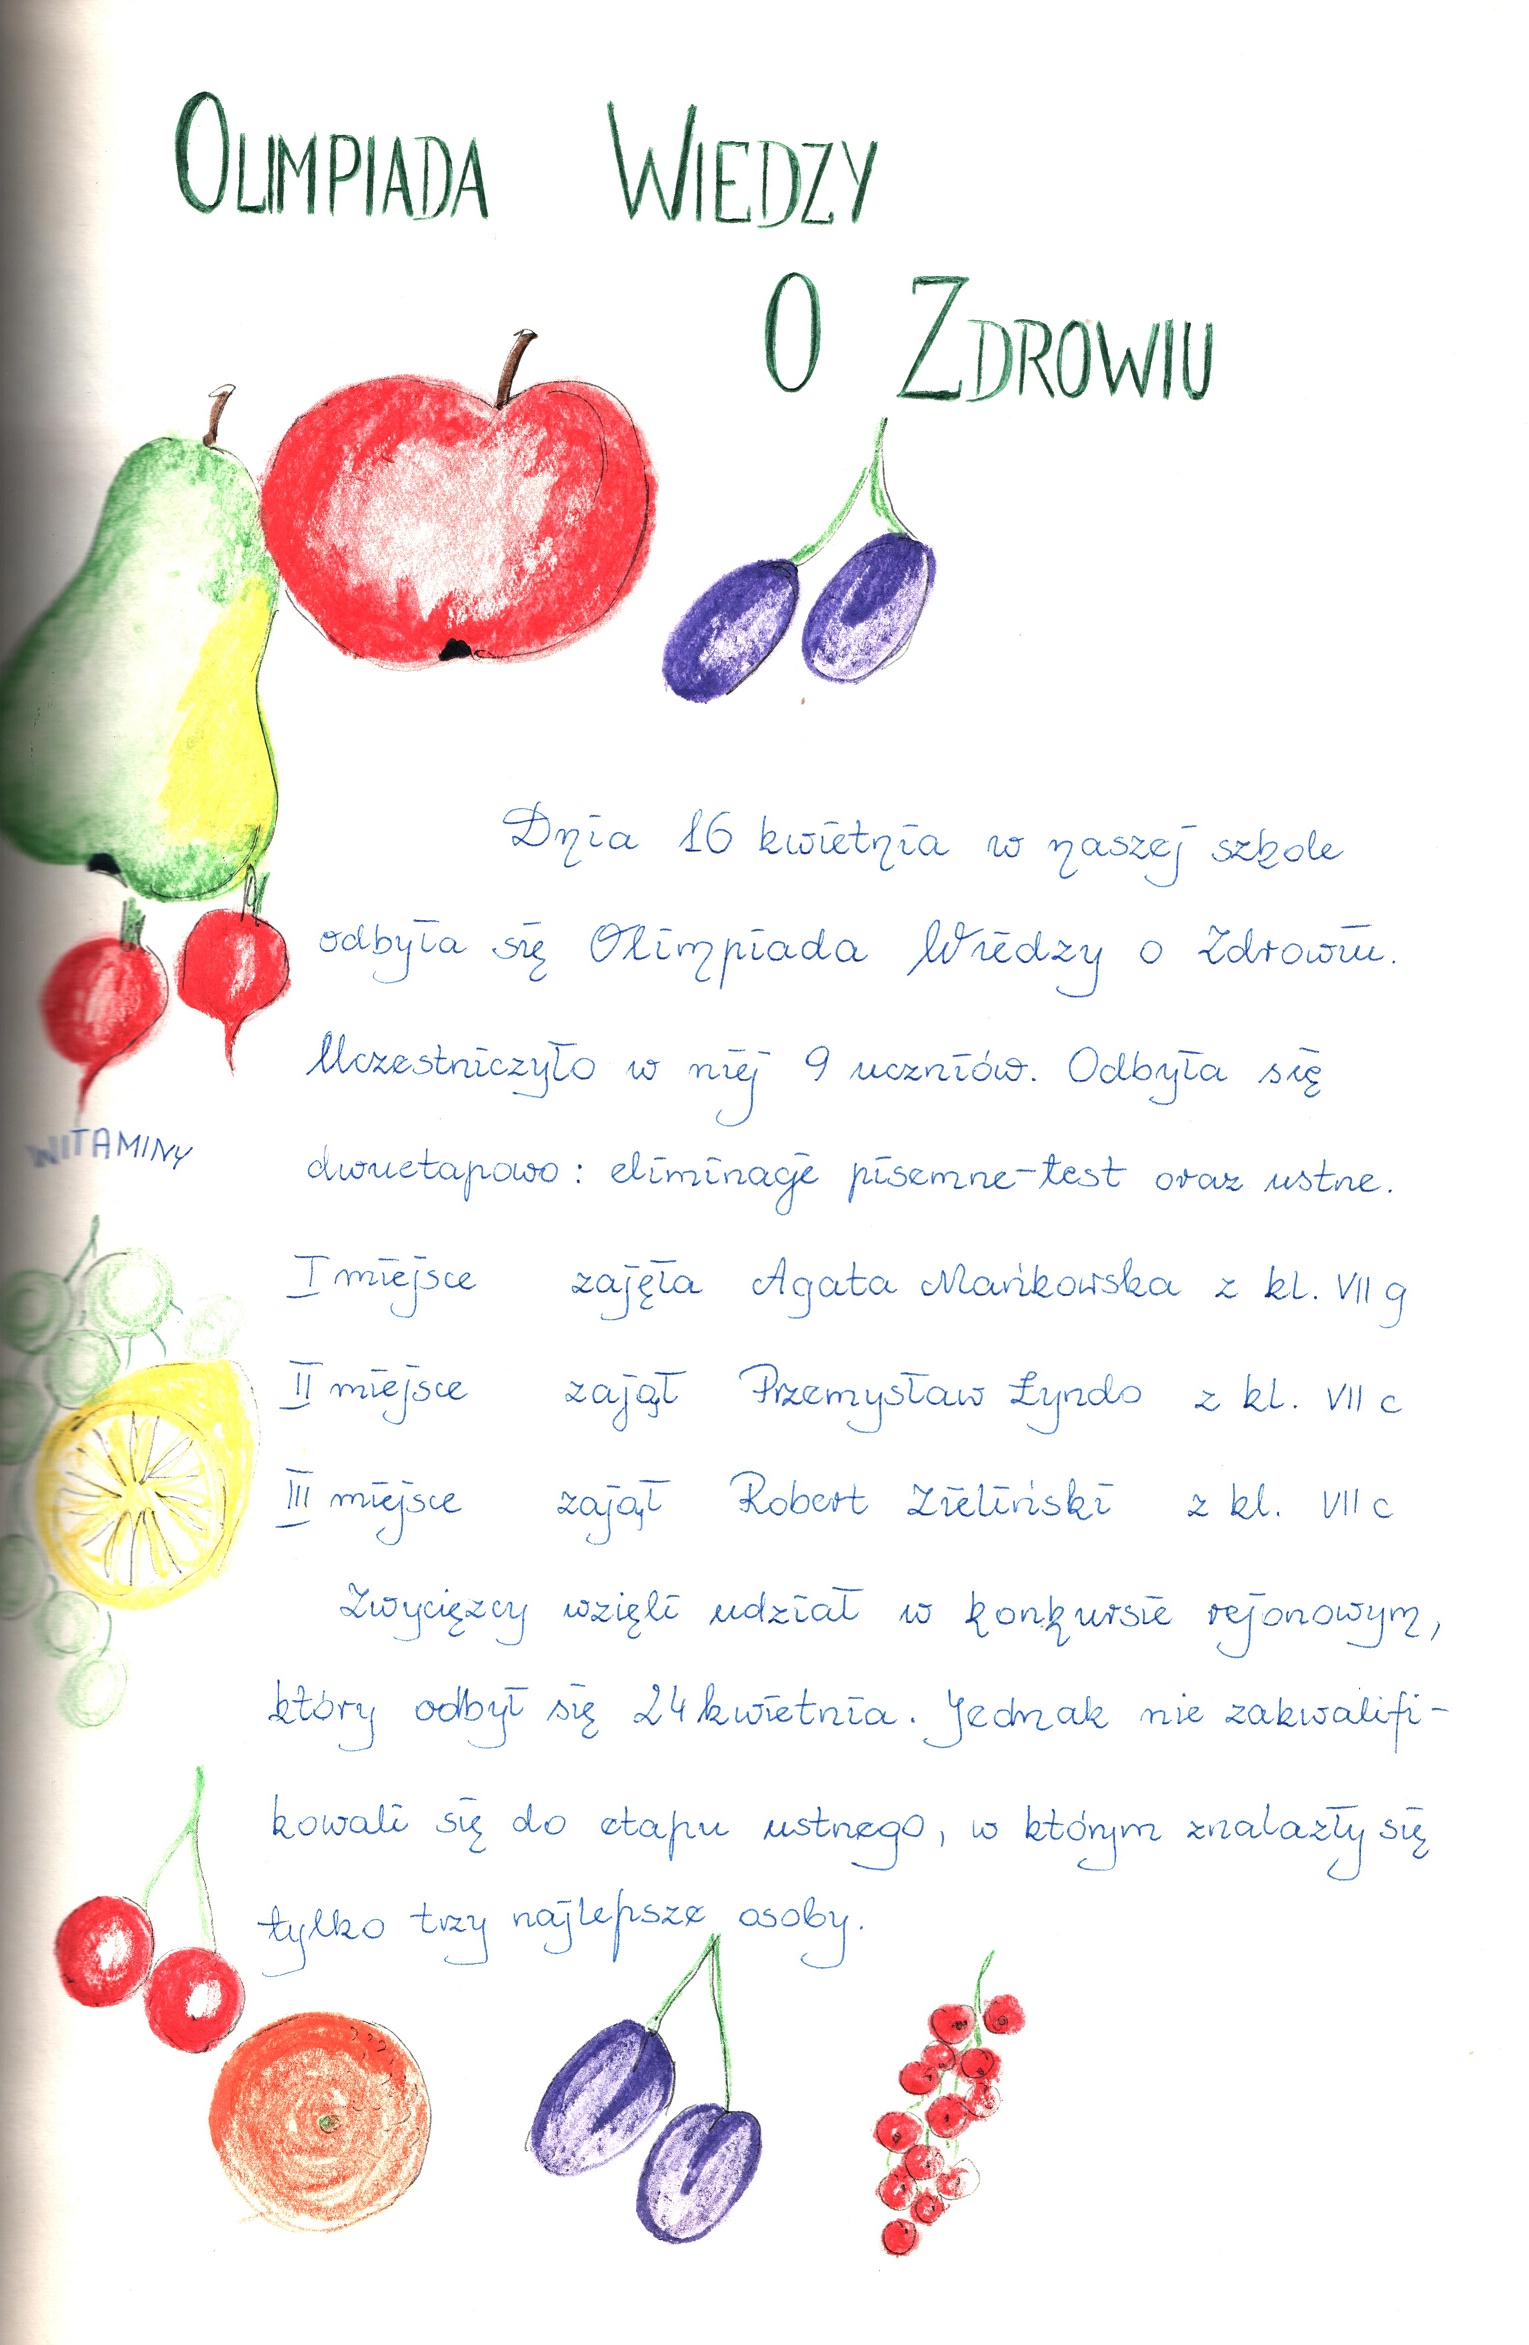 OLIMPIADA WIEDZY
O ZDROWIU
Dnia 16 kwietnia w naszej szkole
odbyła się Olimpiada Wiedzy o Zdrowiu.
Uczestniczyło w niej 9 uczniów. Odbyła się
dwuetapowo: eliminacje pisemne-test oraz ustne.
WITAMINY
I miejsce zajęła Agata Mańkowska z kl. VII g
II miejsce zajął Przemysław Łyndo z kl. VII c
III miejsce zajął Robert Zieliński z kl. VII c
Zwycięzcy wzięli udział w konkursie rejonowym,
który odbył się 24 kwietnia. Jednak nie zakwalifi-
kowali się do etapu ustnego, w którym znalazły się
tylko trzy najlepsze osoby.